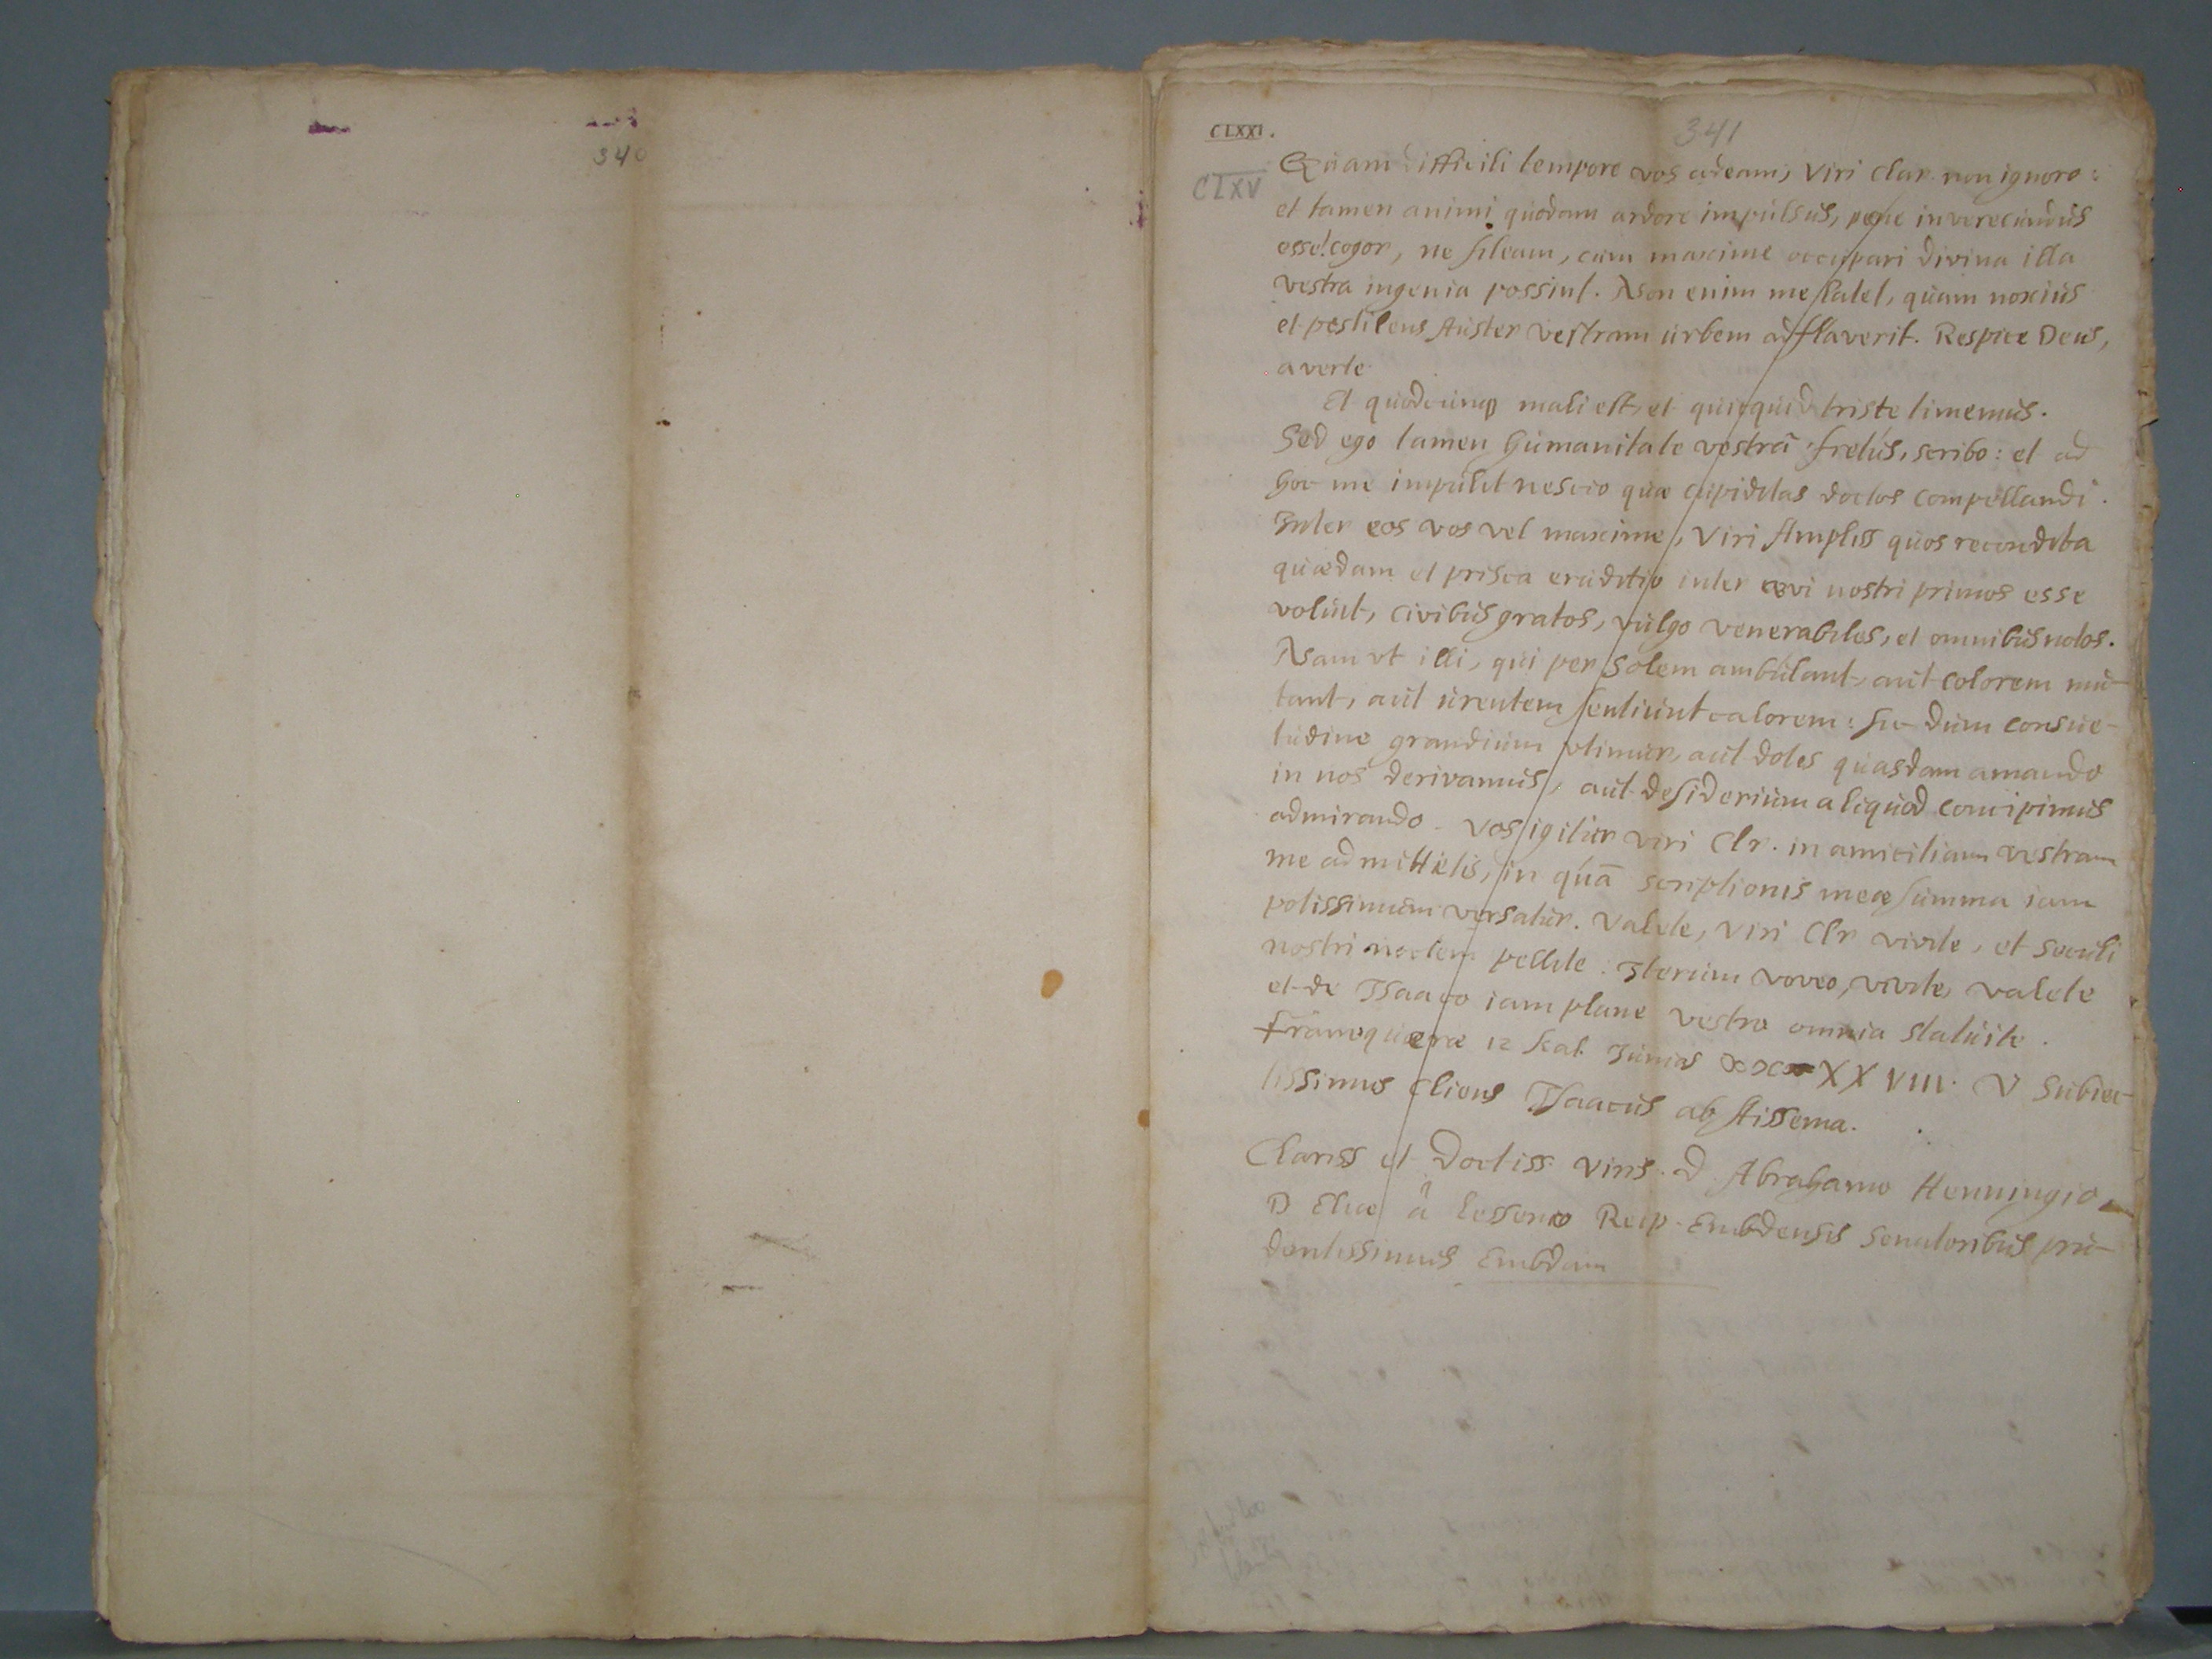 340
CLXXI.
341
CLXV
Quam difficili tempore vos adeam, Viri Clar. non ignoro:
et tamen animi quodam ardore impulsus, pene inverecundus
esse cogor, ne sileam, cum maxime occupari divina illa
vestra ingenia possint. Non enim me latet, quam noxius
et pestilens Auster vestram urbem adflaverit. Respice Deus,
averte
Et quodcunq mali est, et quicquid triste timemus.
Sed ego tamen humanitate vestrâ fretus, scribo: et ad
hoc me impulit nescio quæ cupiditas doctos compellandi.
Inter eos vos vel maxime, Viri Ampliss quos recondita
quædam et prisca eruditio inter ævi nostri primos esse
voluit, civibus gratos, vulgo venerabiles, et omnibus notos.
Nam vt illi, qui per Solem ambulant, aut colorem mu-
tant, aut urentem sentiunt calorem: sic dum consue-
tudine grandium vtimur, aut dotes quasdam amando
in nos derivamus, aut desiderium aliquod concipimus
admirando. Vos igitur viri Clr. in amicitiam vestram
me admittetis, in quâ scriptionis meæ summa iam
potissimum versatur. Valete, Viri Clr vivite, et seculi
nostri noctem pellite. Iterum voveo, vivite, valete
et de Isaaco iam plane vestro omnia statuite.
Franequeræ 12 Kal. Junias XXVIII. V Subiec-
tissimus cliens Isaacus ab Aissema.
Clariss et Doctiss viris. D. Abrahamo Henningio
D Eliæ à Lessenio Reip. Embdensis Senatoribus pru-
dentissimis Embdam